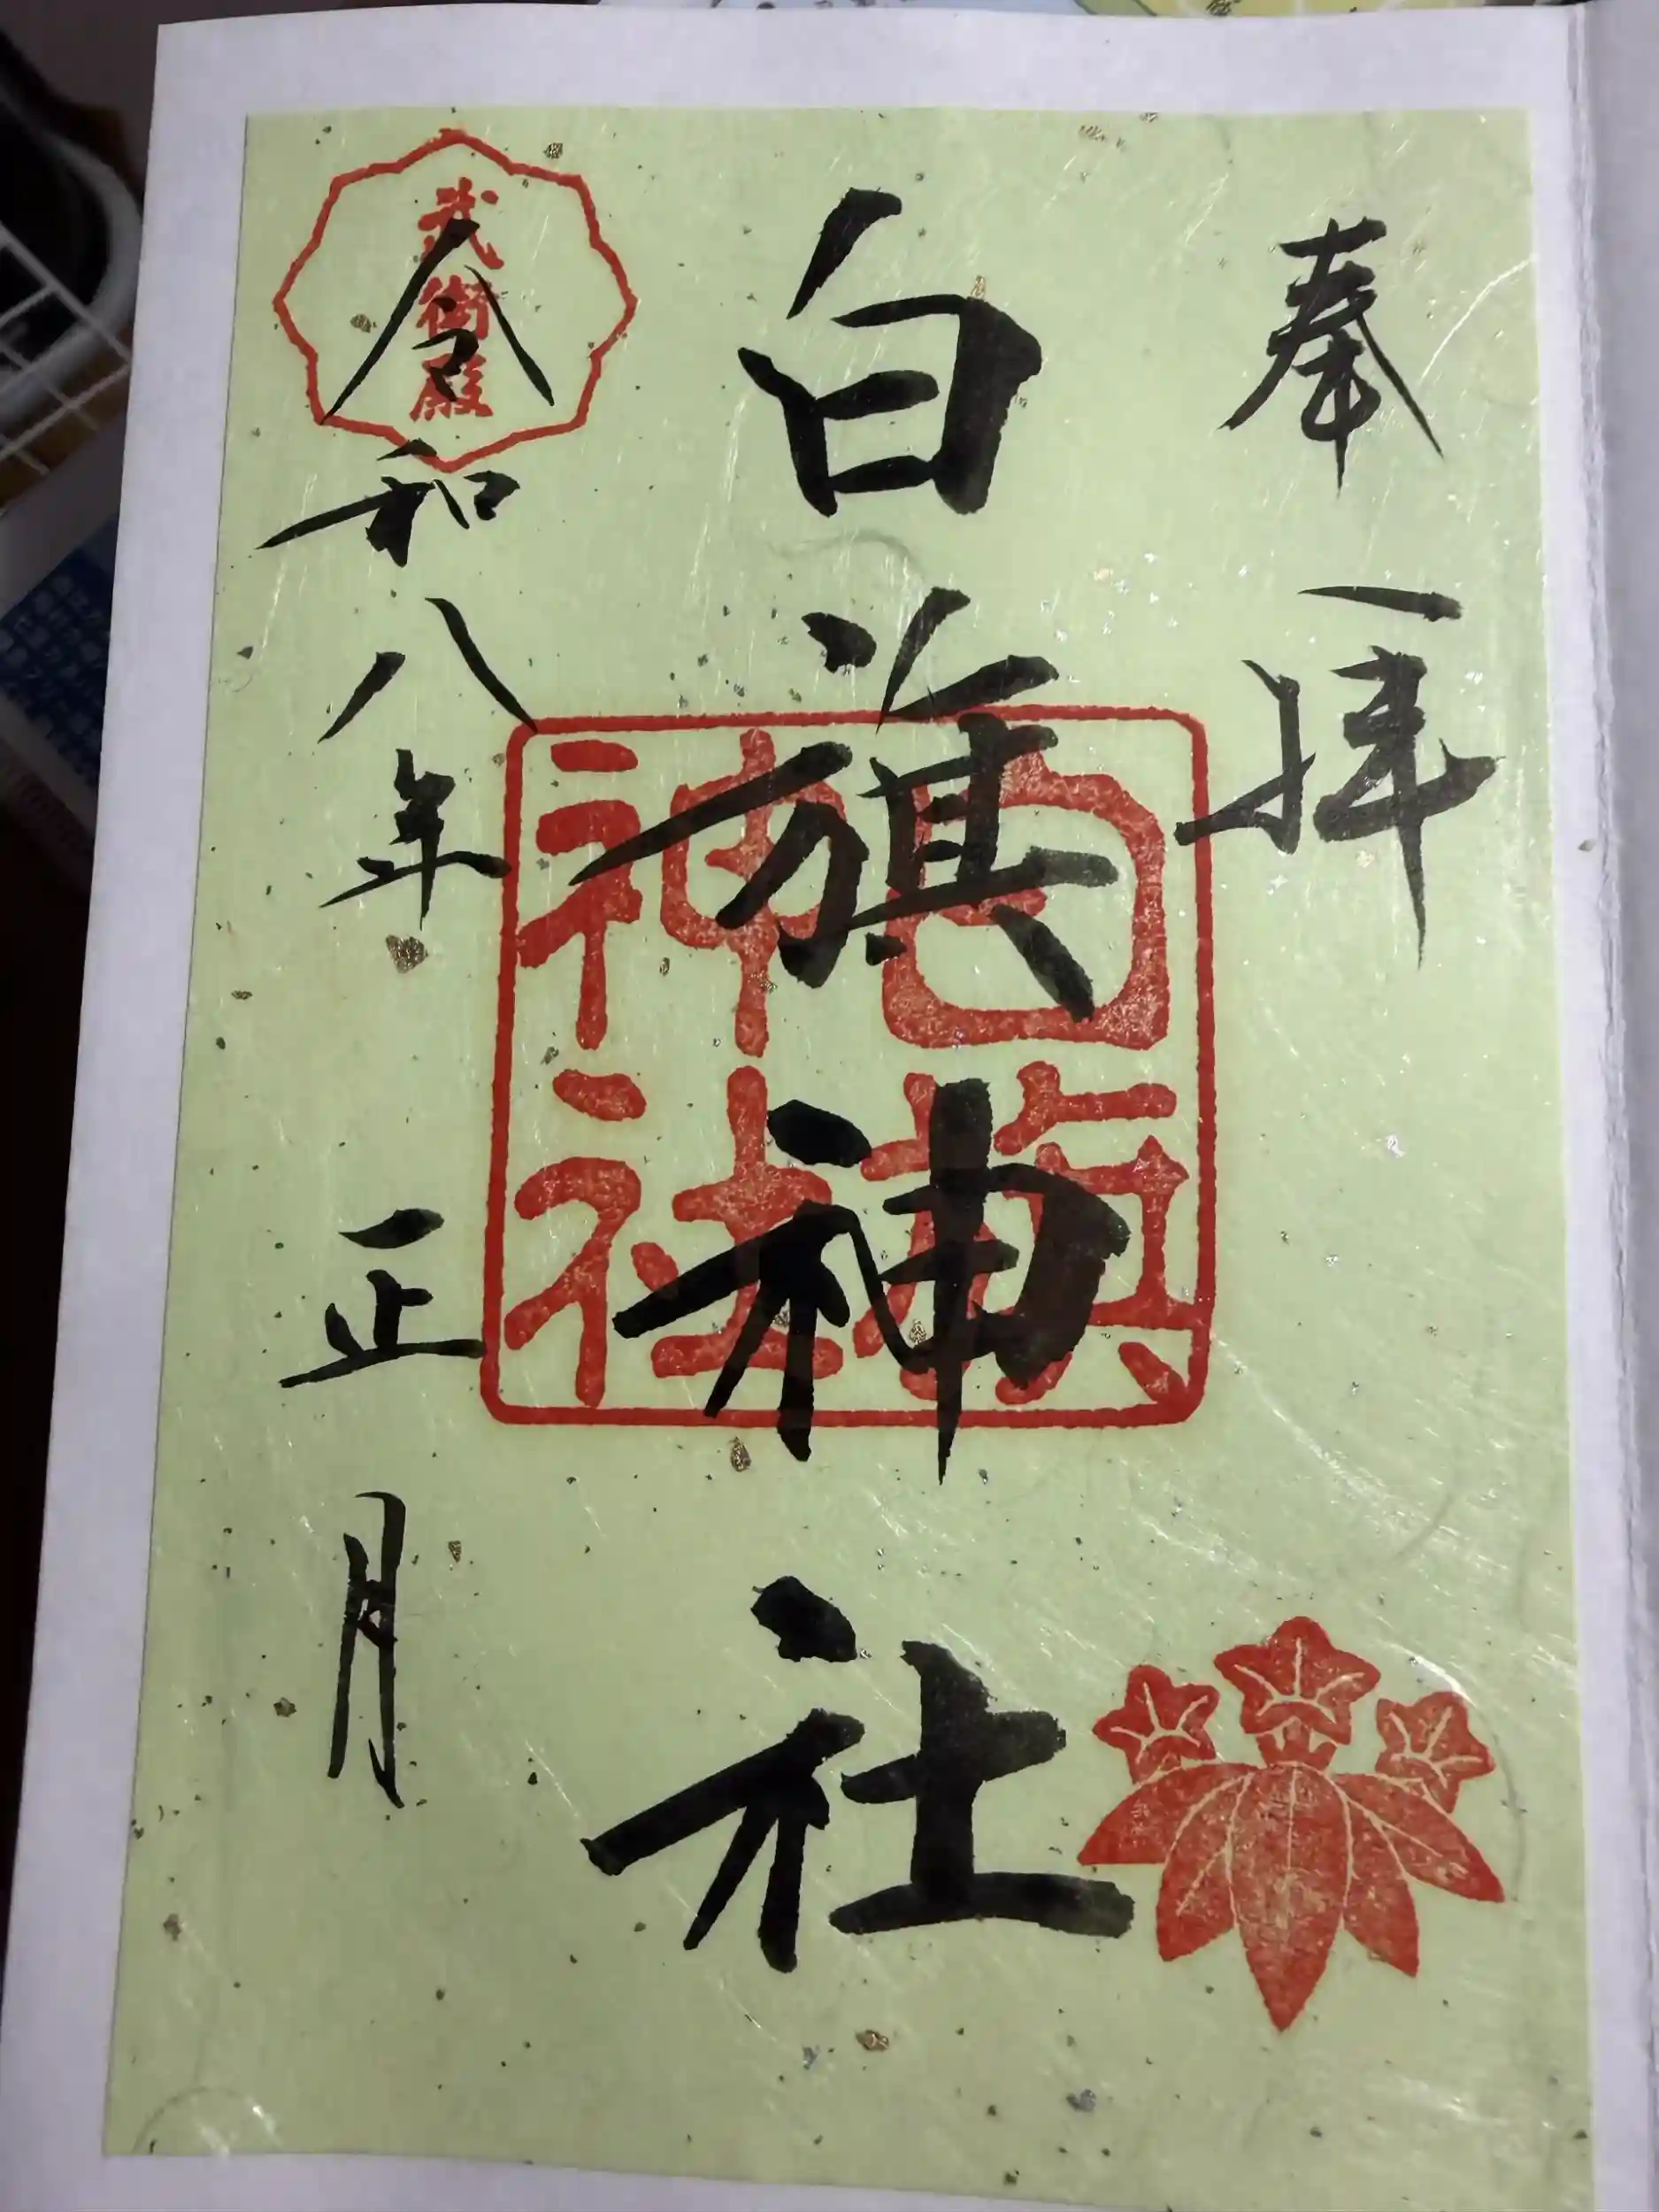 奉拝
白旗神社
白旗
神社
武衛殿
令和八年 正月